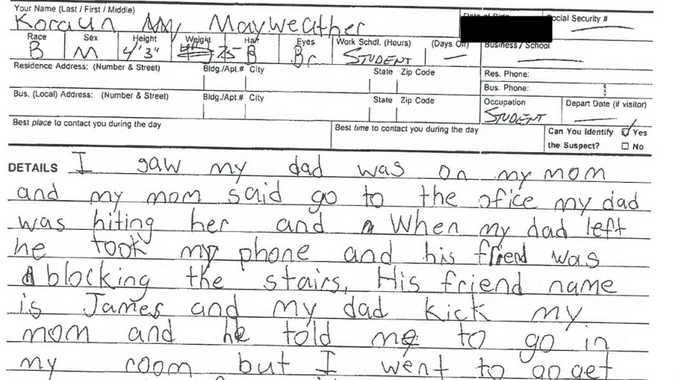 Your Name (Last / First / Middle)
Koraun Mayweather
Social Security #
Race Sex Height Weight Hair Eyes Work Schdl. (Hours) (Days Off) Business / School
B M 4'3" 75 B Br STUDENT —
Residence Address: (Number & Street) Bldg./Apt.# City State Zip Code Res. Phone:
Bus. Phone:
Bus. (Local) Address: (Number & Street) Bldg./Apt.# City State Zip Code Occupation Depart Date (if visitor)
STUDENT —
Best place to contact you during the day Best time to contact you during the day Can You Identify Yes
the Suspect? No
DETAILS I saw my dad was on my mom
and my mom said go to the ofice my dad
was hiting her and When my dad left
he took my phone and his friend was
blocking the stairs, His friend name
is James and my dad kick my
mom and he told me to go in
my room but I went to go get